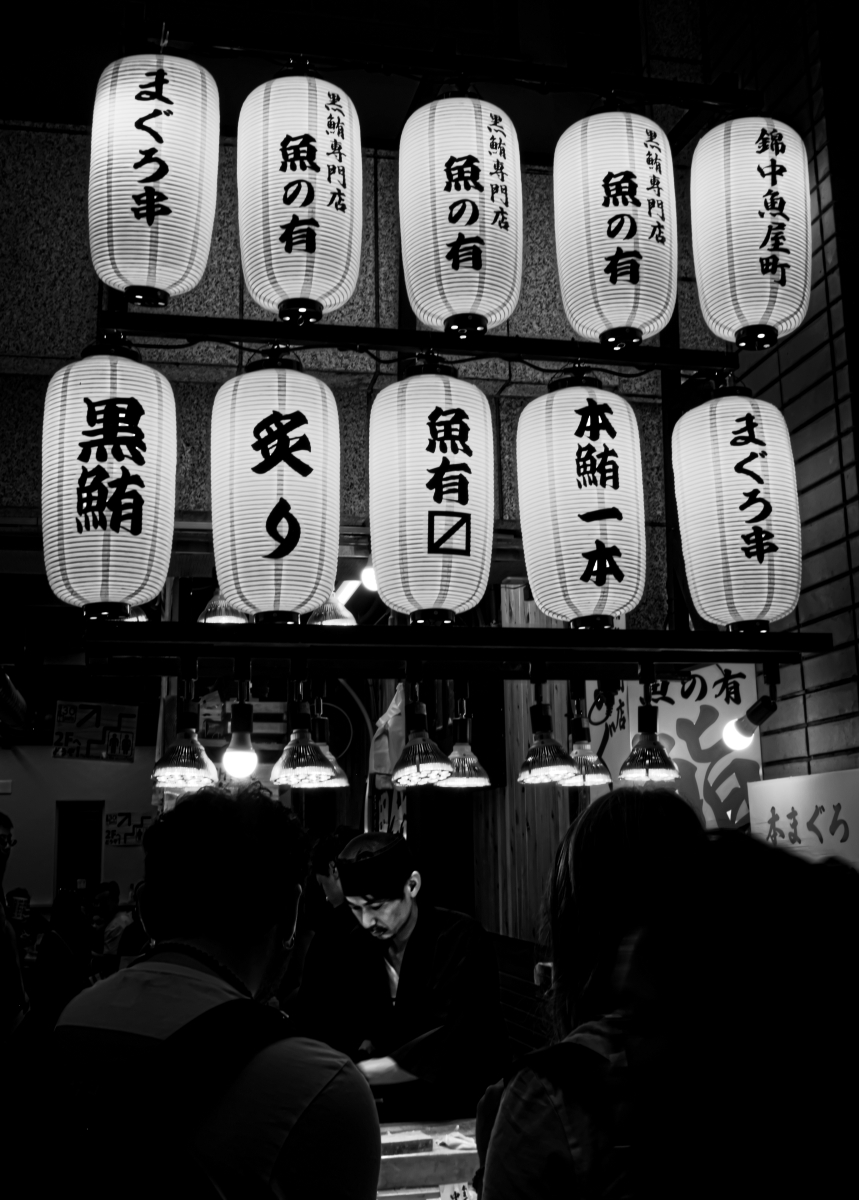 まぐろ串
黒鮪専門店
魚の有
黒鮪専門店
魚の有
黒鮪専門店
魚の有
錦中魚屋町
黒鮪
炙り
魚有〼
本鮪一本
まぐろ串
魚の有
本まぐろ